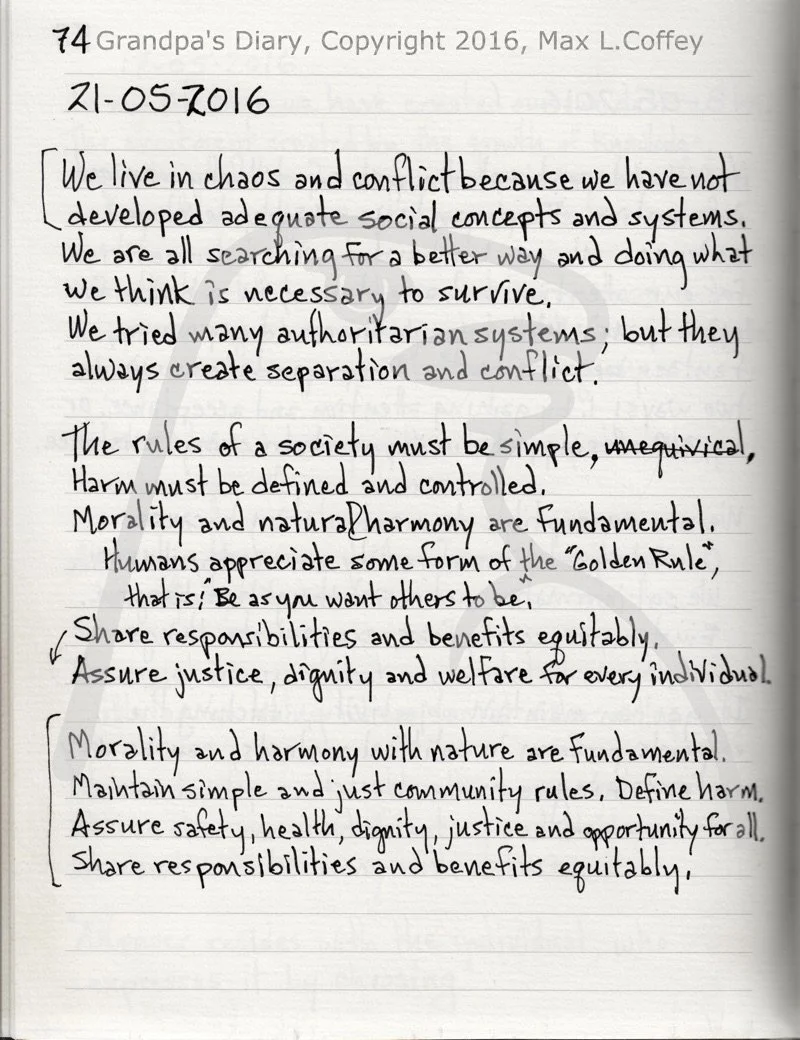 74 Grandpa's Diary, Copyright 2016, Max L.Coffey
21-05-2016
We live in chaos and conflict because we have not
developed adequate social concepts and systems.
We are all searching for a better way and doing what
we think is necessary to survive.
We tried many authoritarian systems; but they
always create separation and conflict.
The rules of a society must be simple, unequivical,
Harm must be defined and controlled.
Morality and natural harmony are fundamental.
Humans appreciate some form of the "Golden Rule",
that is: "Be as you want others to be."
Share responsibilities and benefits equitably.
Assure justice, dignity and welfare for every individual.
Morality and harmony with nature are fundamental.
Maintain simple and just community rules. Define harm.
Assure safety, health, dignity, justice and opportunity for all.
Share responsibilities and benefits equitably.